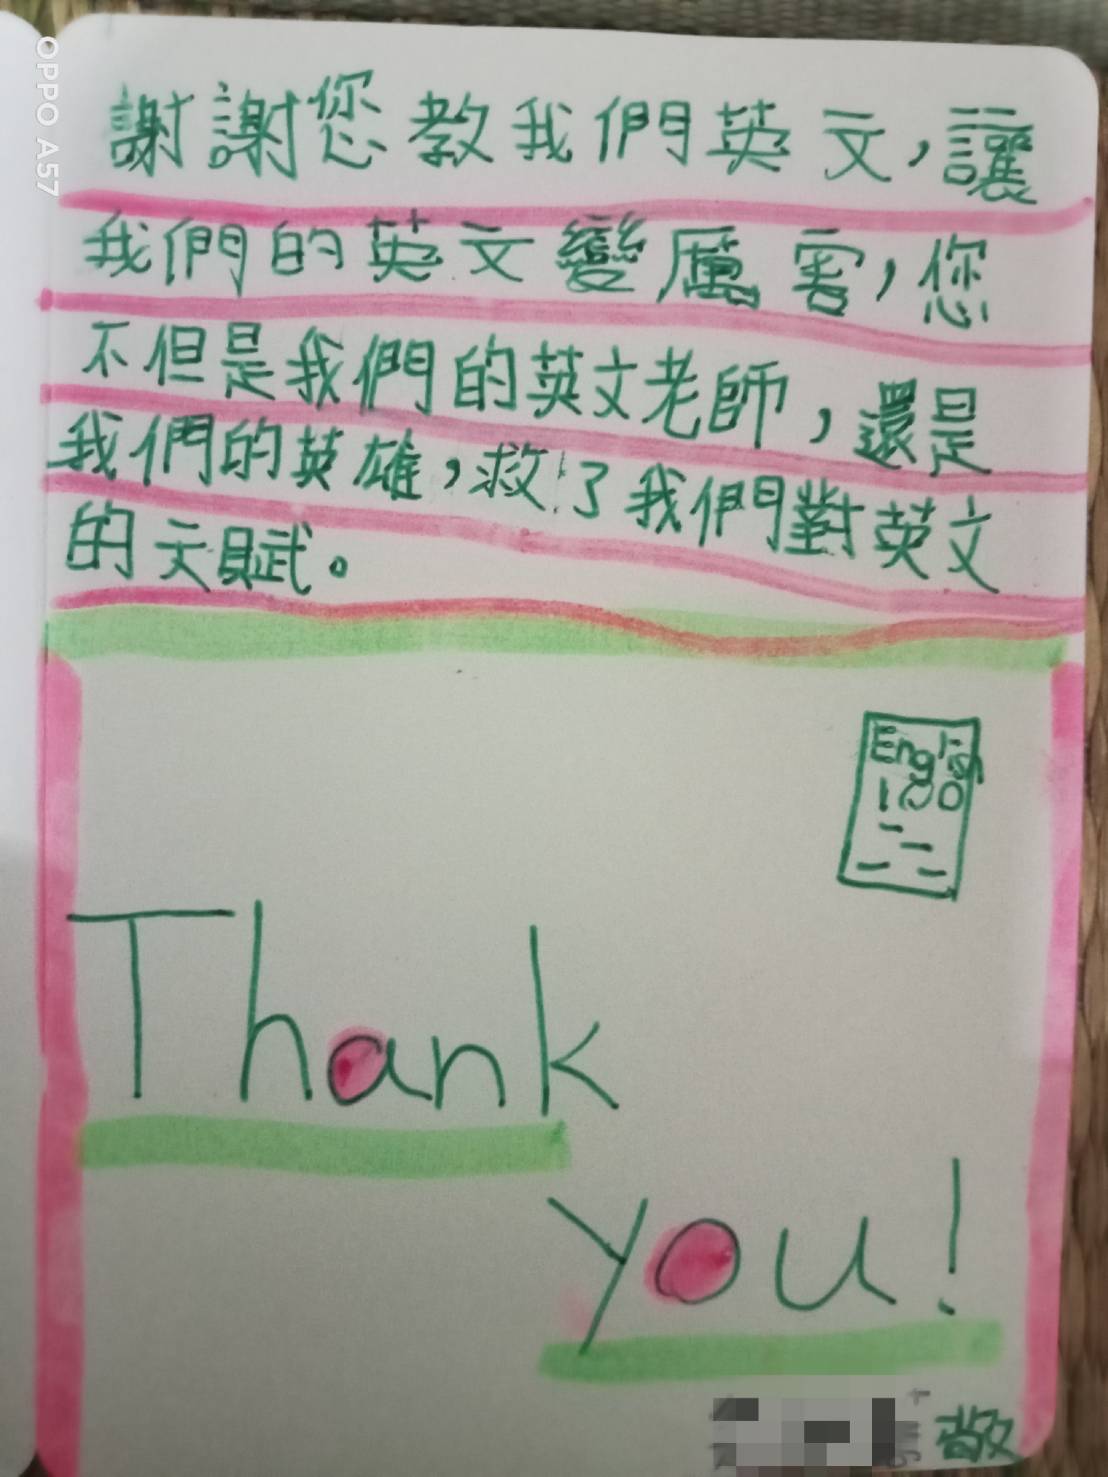 謝謝您教我們英文,讓
我們的英文變厲害,您
不但是我們的英文老師,還是
我們的英雄,救了我們對英文
的天賦。
English
100
Thank
you!
敬
OPPO A57